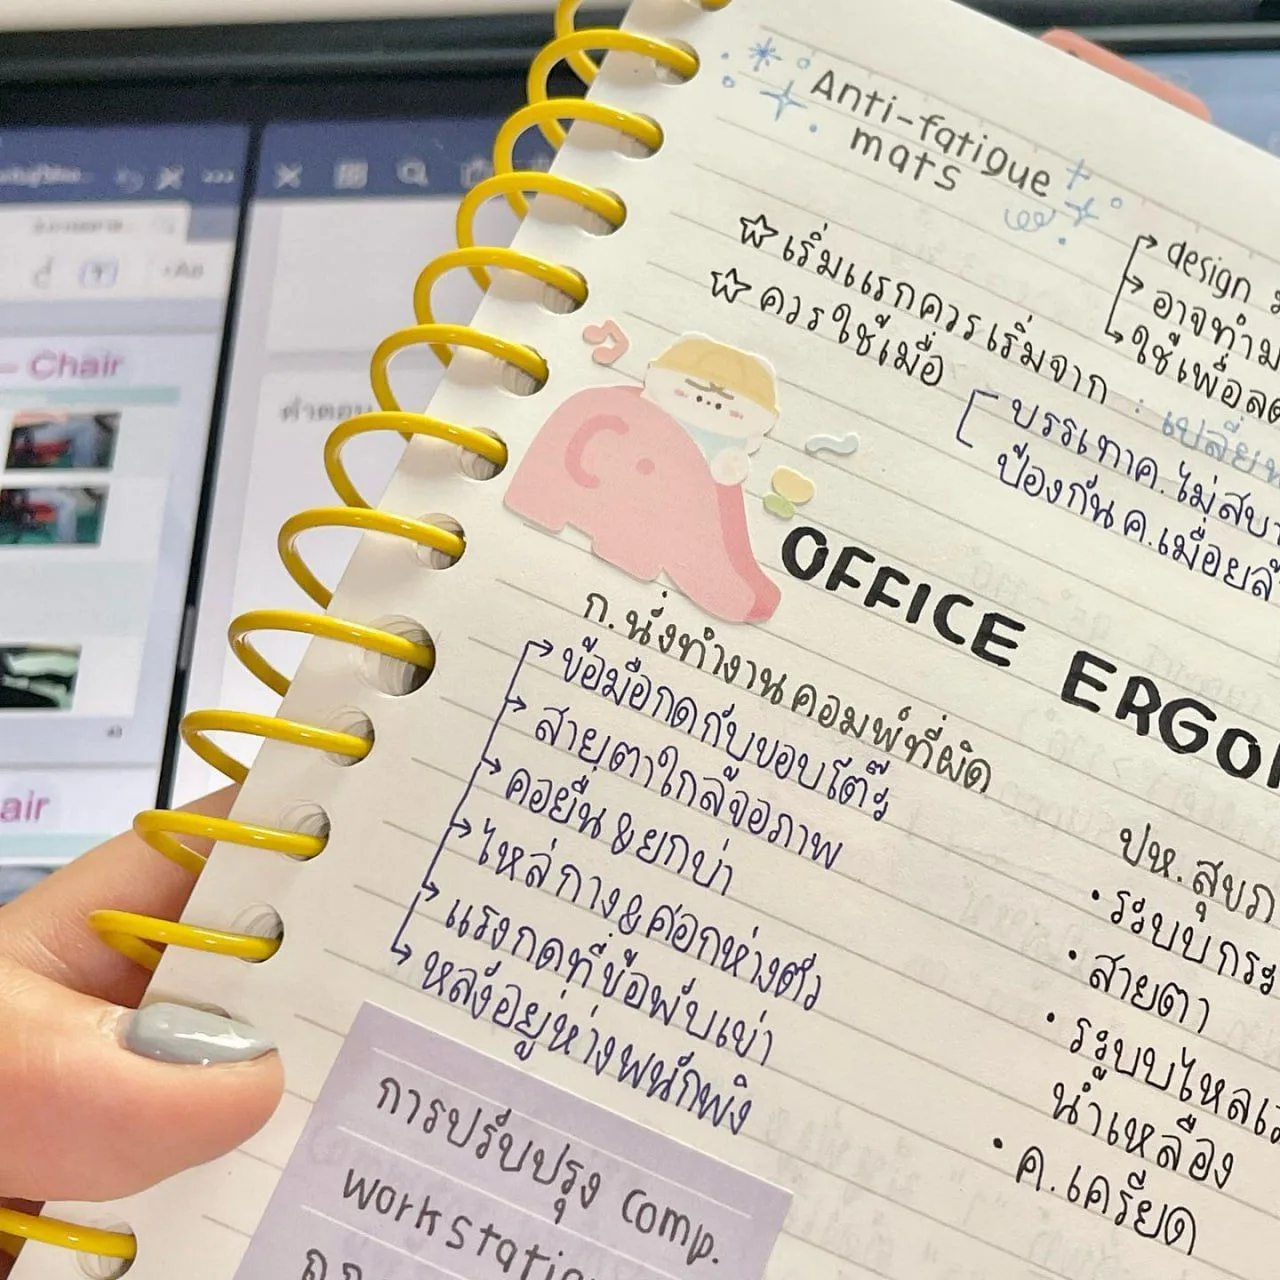 Anti-fatigue
mats
design
อาจทำม
ใช้เพื่อลด
เริ่มแรกควรเริ่มจาก : เปลี่ยน
ควรใช้เมื่อ
บรรเทาค.ไม่สบา
ป้องกันค.เมื่อยล้
OFFICE ERGO
ก.นั่งทำงานคอมพ์ที่ผิด
ข้อมือกดกับขอบโต๊ะ
สายตาใกล้จอภาพ
คอยื่น&ยกบ่า
ไหล่กาง&ศอกห่างตัว
แรงกดที่ข้อพับเข่า
หลังอยู่ห่างพนักพิง
ปห.สุขภ
• ระบบกระ
• สายตา
• ระบบไหลเ
น้ำเหลือง
• ค.เครียด
การปรับปรุง comp.
workstatio
– Chair
คำตอบ
43
air